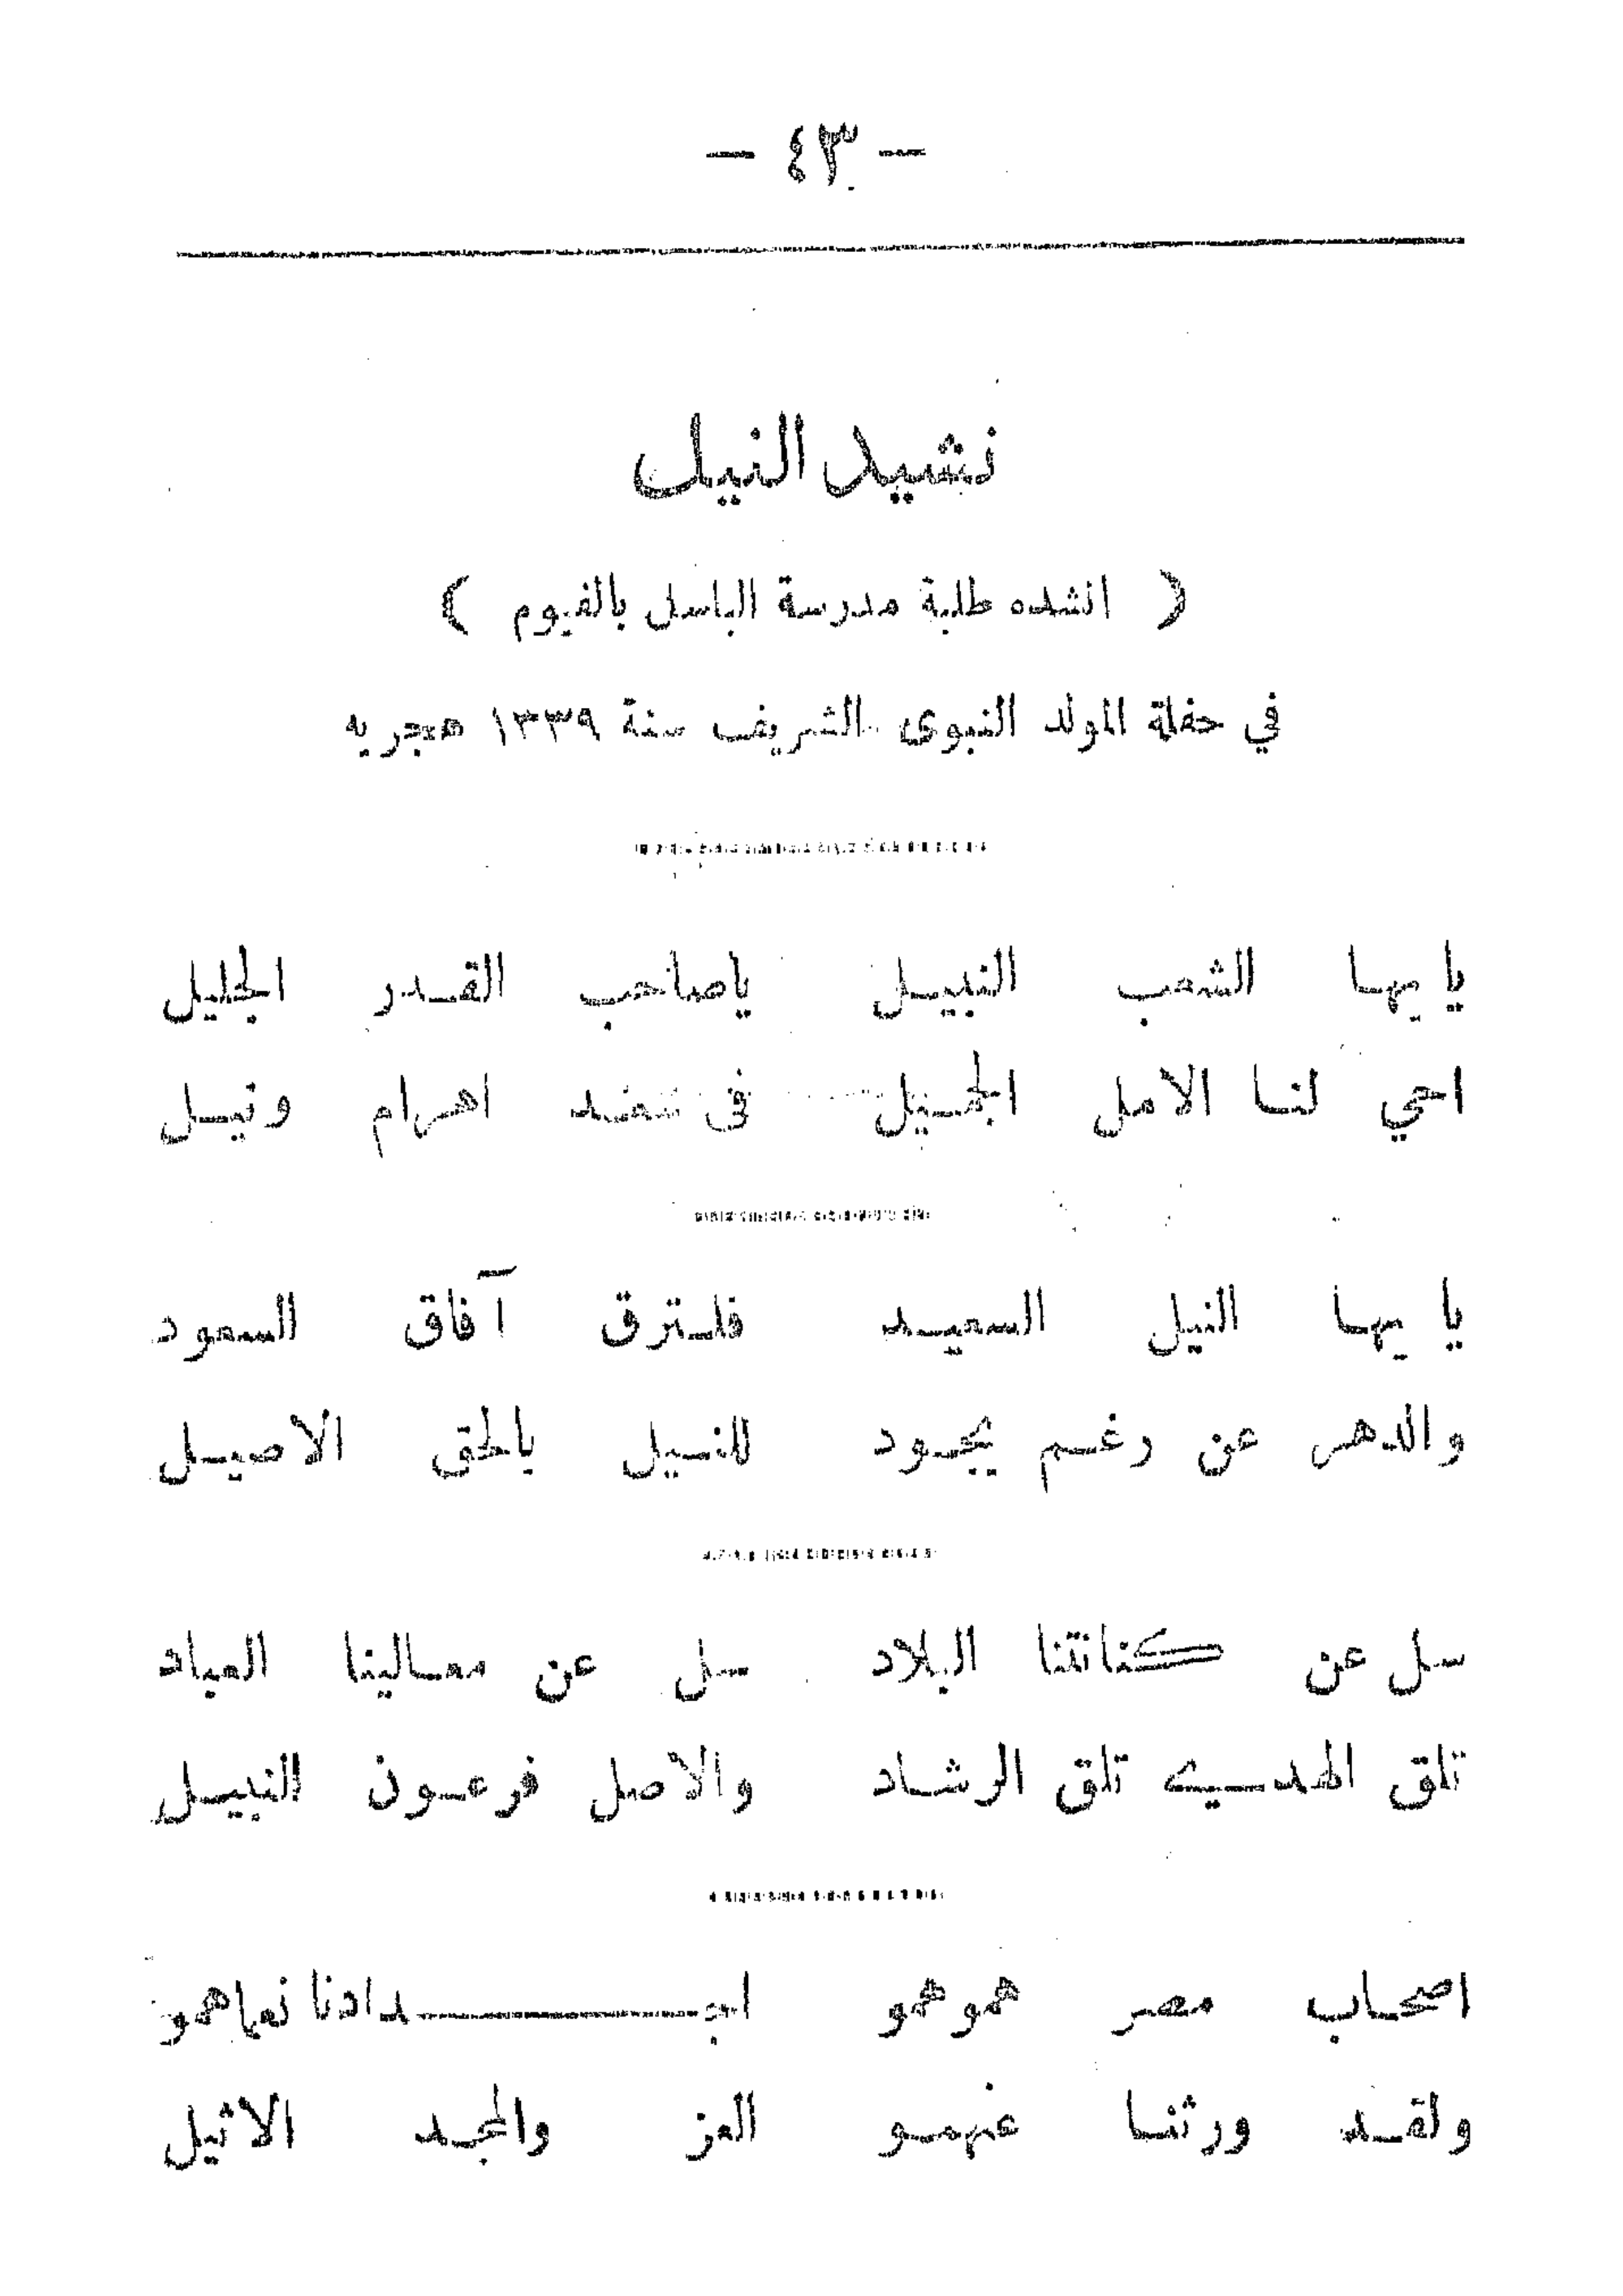 — ٤٣ —
نشيد النيل
( انشده طلبة مدرسة الباسل بالفيوم )
في حفلة المولد النبوى الشريف سنة ١٣٣٩ هجريه
يا يها الشعب النبيل ياصاحب القدر الجليل
احي لنا الامل الجميل فى اهرام ونيل
يا يها النيل السعيد فلسترق آفاق السعود
والدهر عن رغم يجود للنيل بالحق الاصيل
سل عن كنانتنا البلاد سل عن معالينا العباد
تلق الهدى تلق الرشاد والاصل فرعون النبيل
اصحاب مصر هموهمو اجدادنا نعماهمو
ولقد ورثنا عنهمو العز والمجد الاثيل